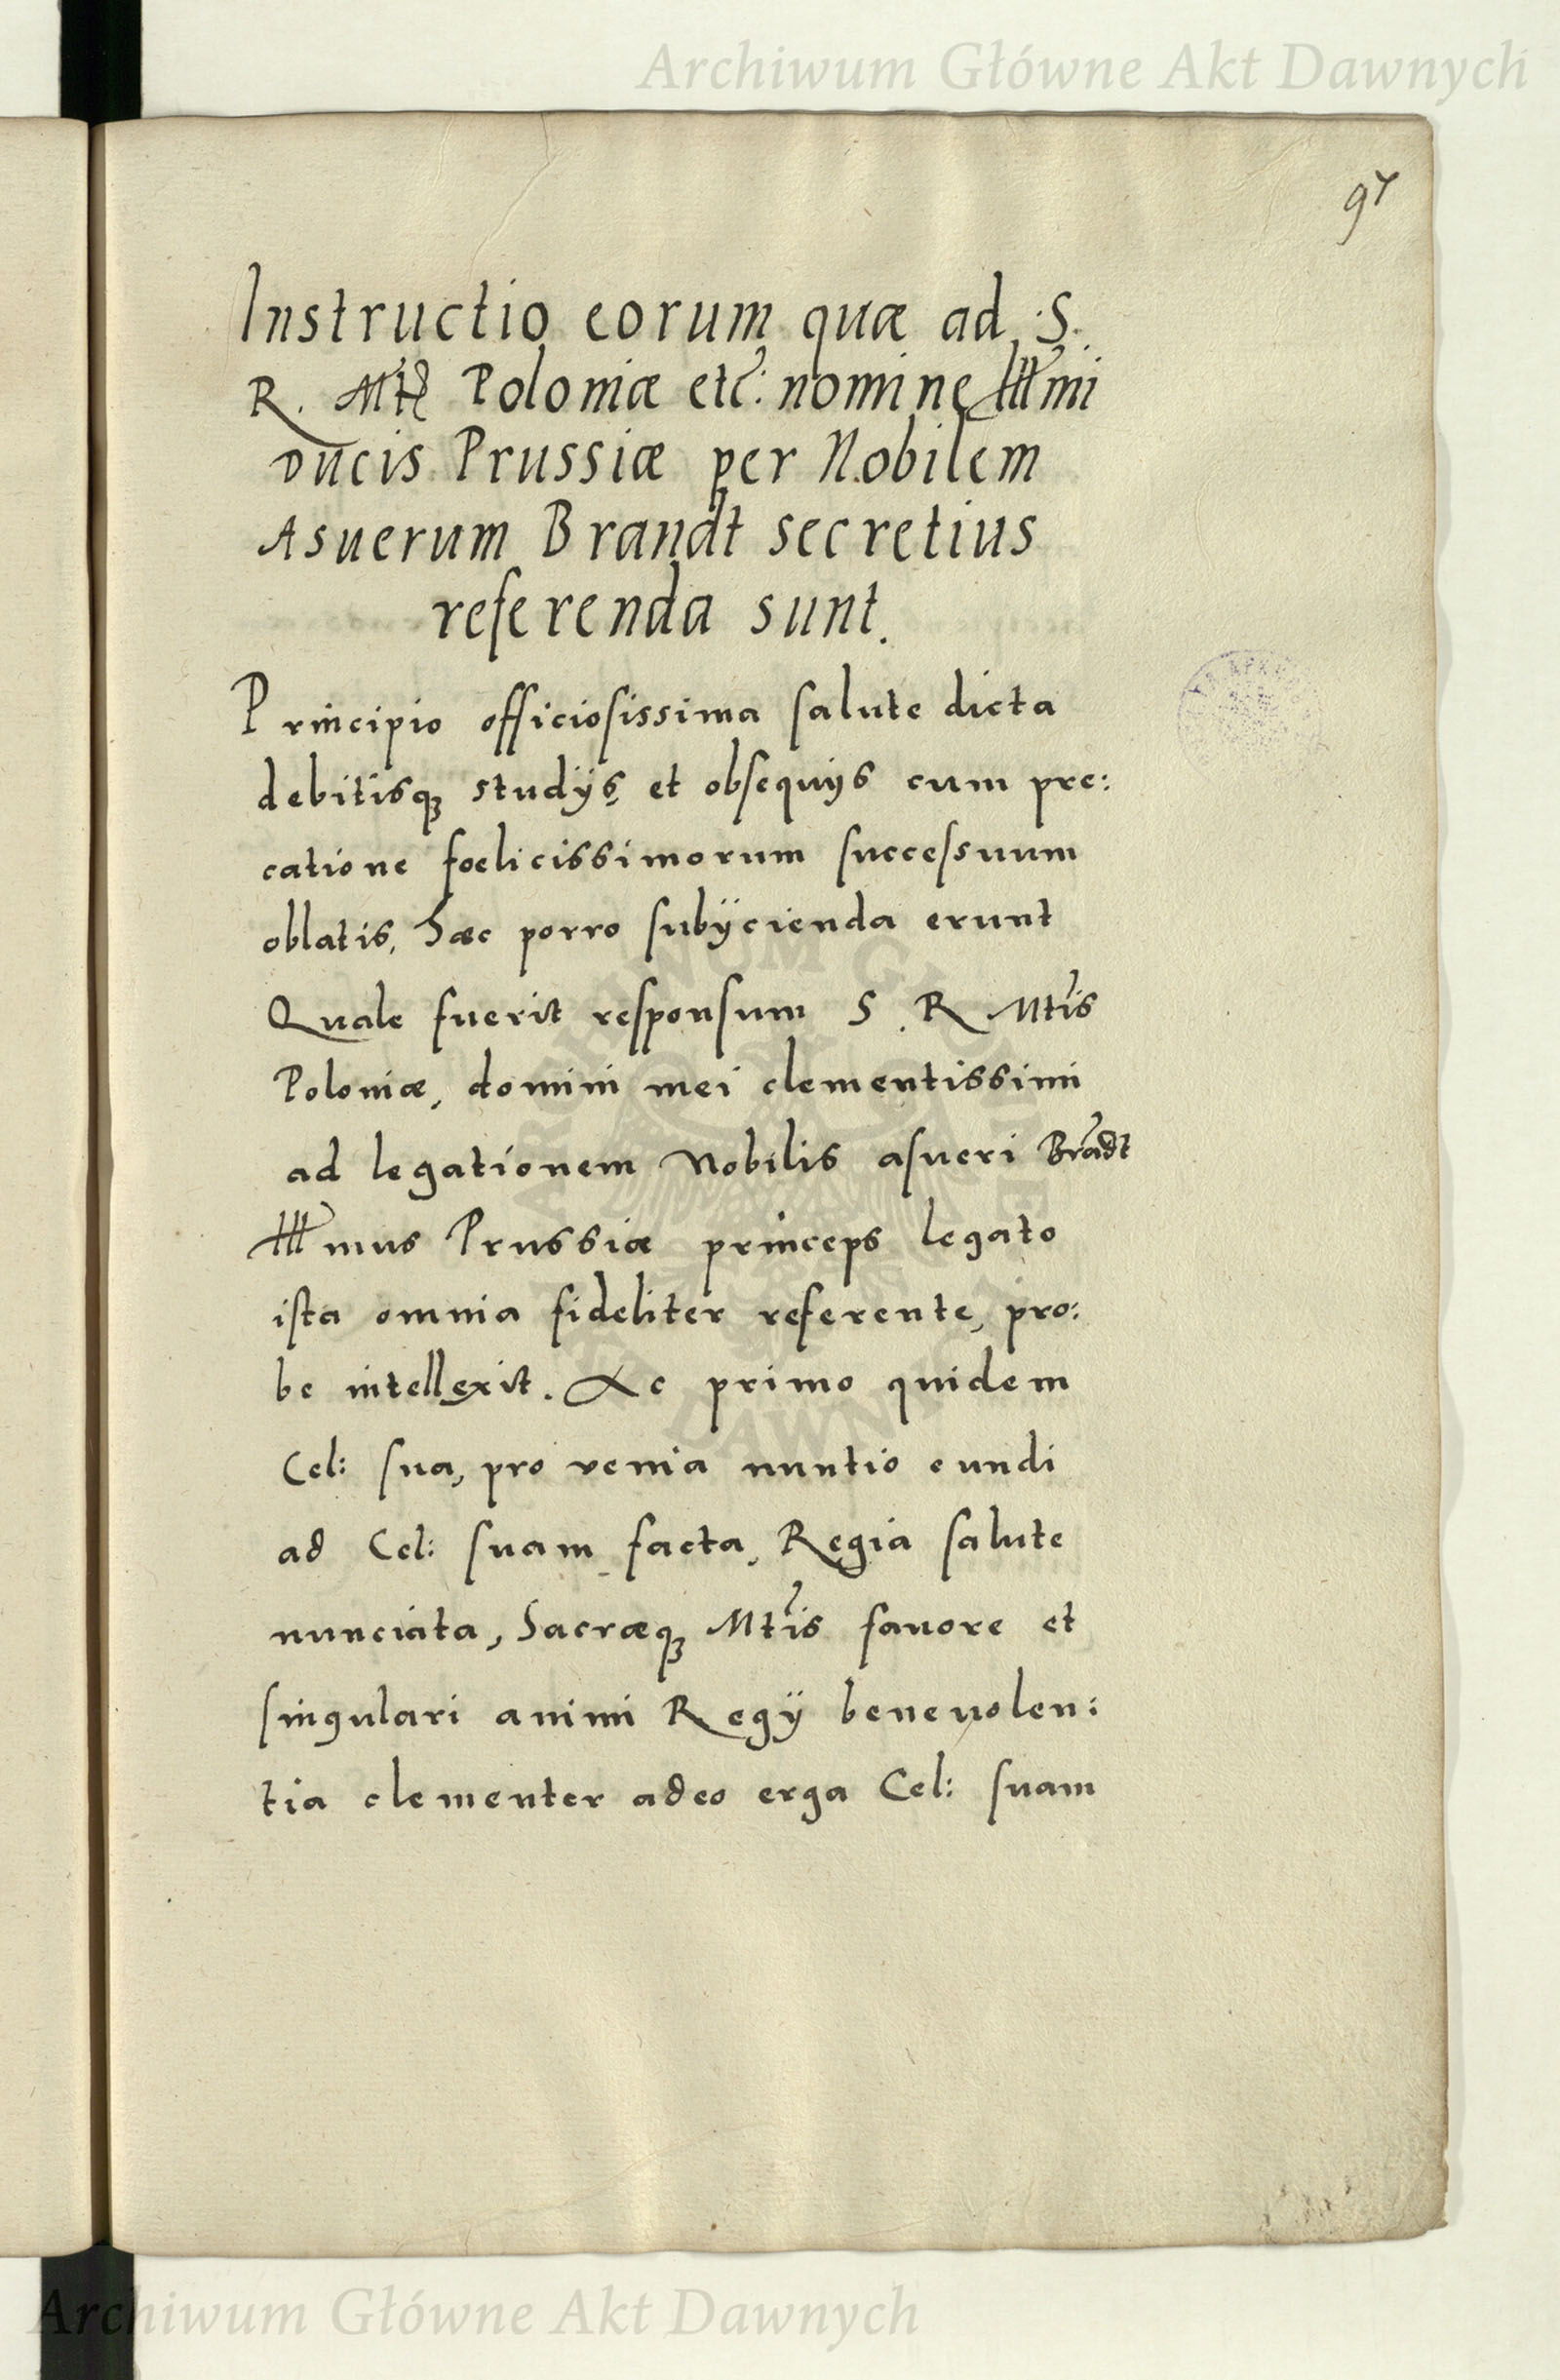 Archiwum Główne Akt Dawnych
97
Instructio eorum quæ ad .S.
R. Mtē Poloniæ etc: nomine Illmi
Ducis Prussiæ per Nobilem
Asuerum Brandt secretius
referenda sunt.
Principio officiosissima salute dicta
debitisq₃ studÿs, et obsequÿs cum pre:
catione foelicissimorum successuum
oblatis, Hæc porro subÿcienda erunt
Quale fuerit responsum S. R Mtis
Poloniæ, domini mei clementissimi
ad legationem Nobilis asueri Brādt
Illmus Prussiæ princeps legato
ista omnia fideliter referente, pro:
be intellexit. Ac primo quidem
Cel: sua, pro venia nuntio eundi
ad Cel: suam facta, Regia salute
nunciata, Sacræq₃ Mtis fauore et
singulari animi Regÿ beneuolen:
tia clementer adeo erga Cel: suam
Archiwum Główne Akt Dawnych